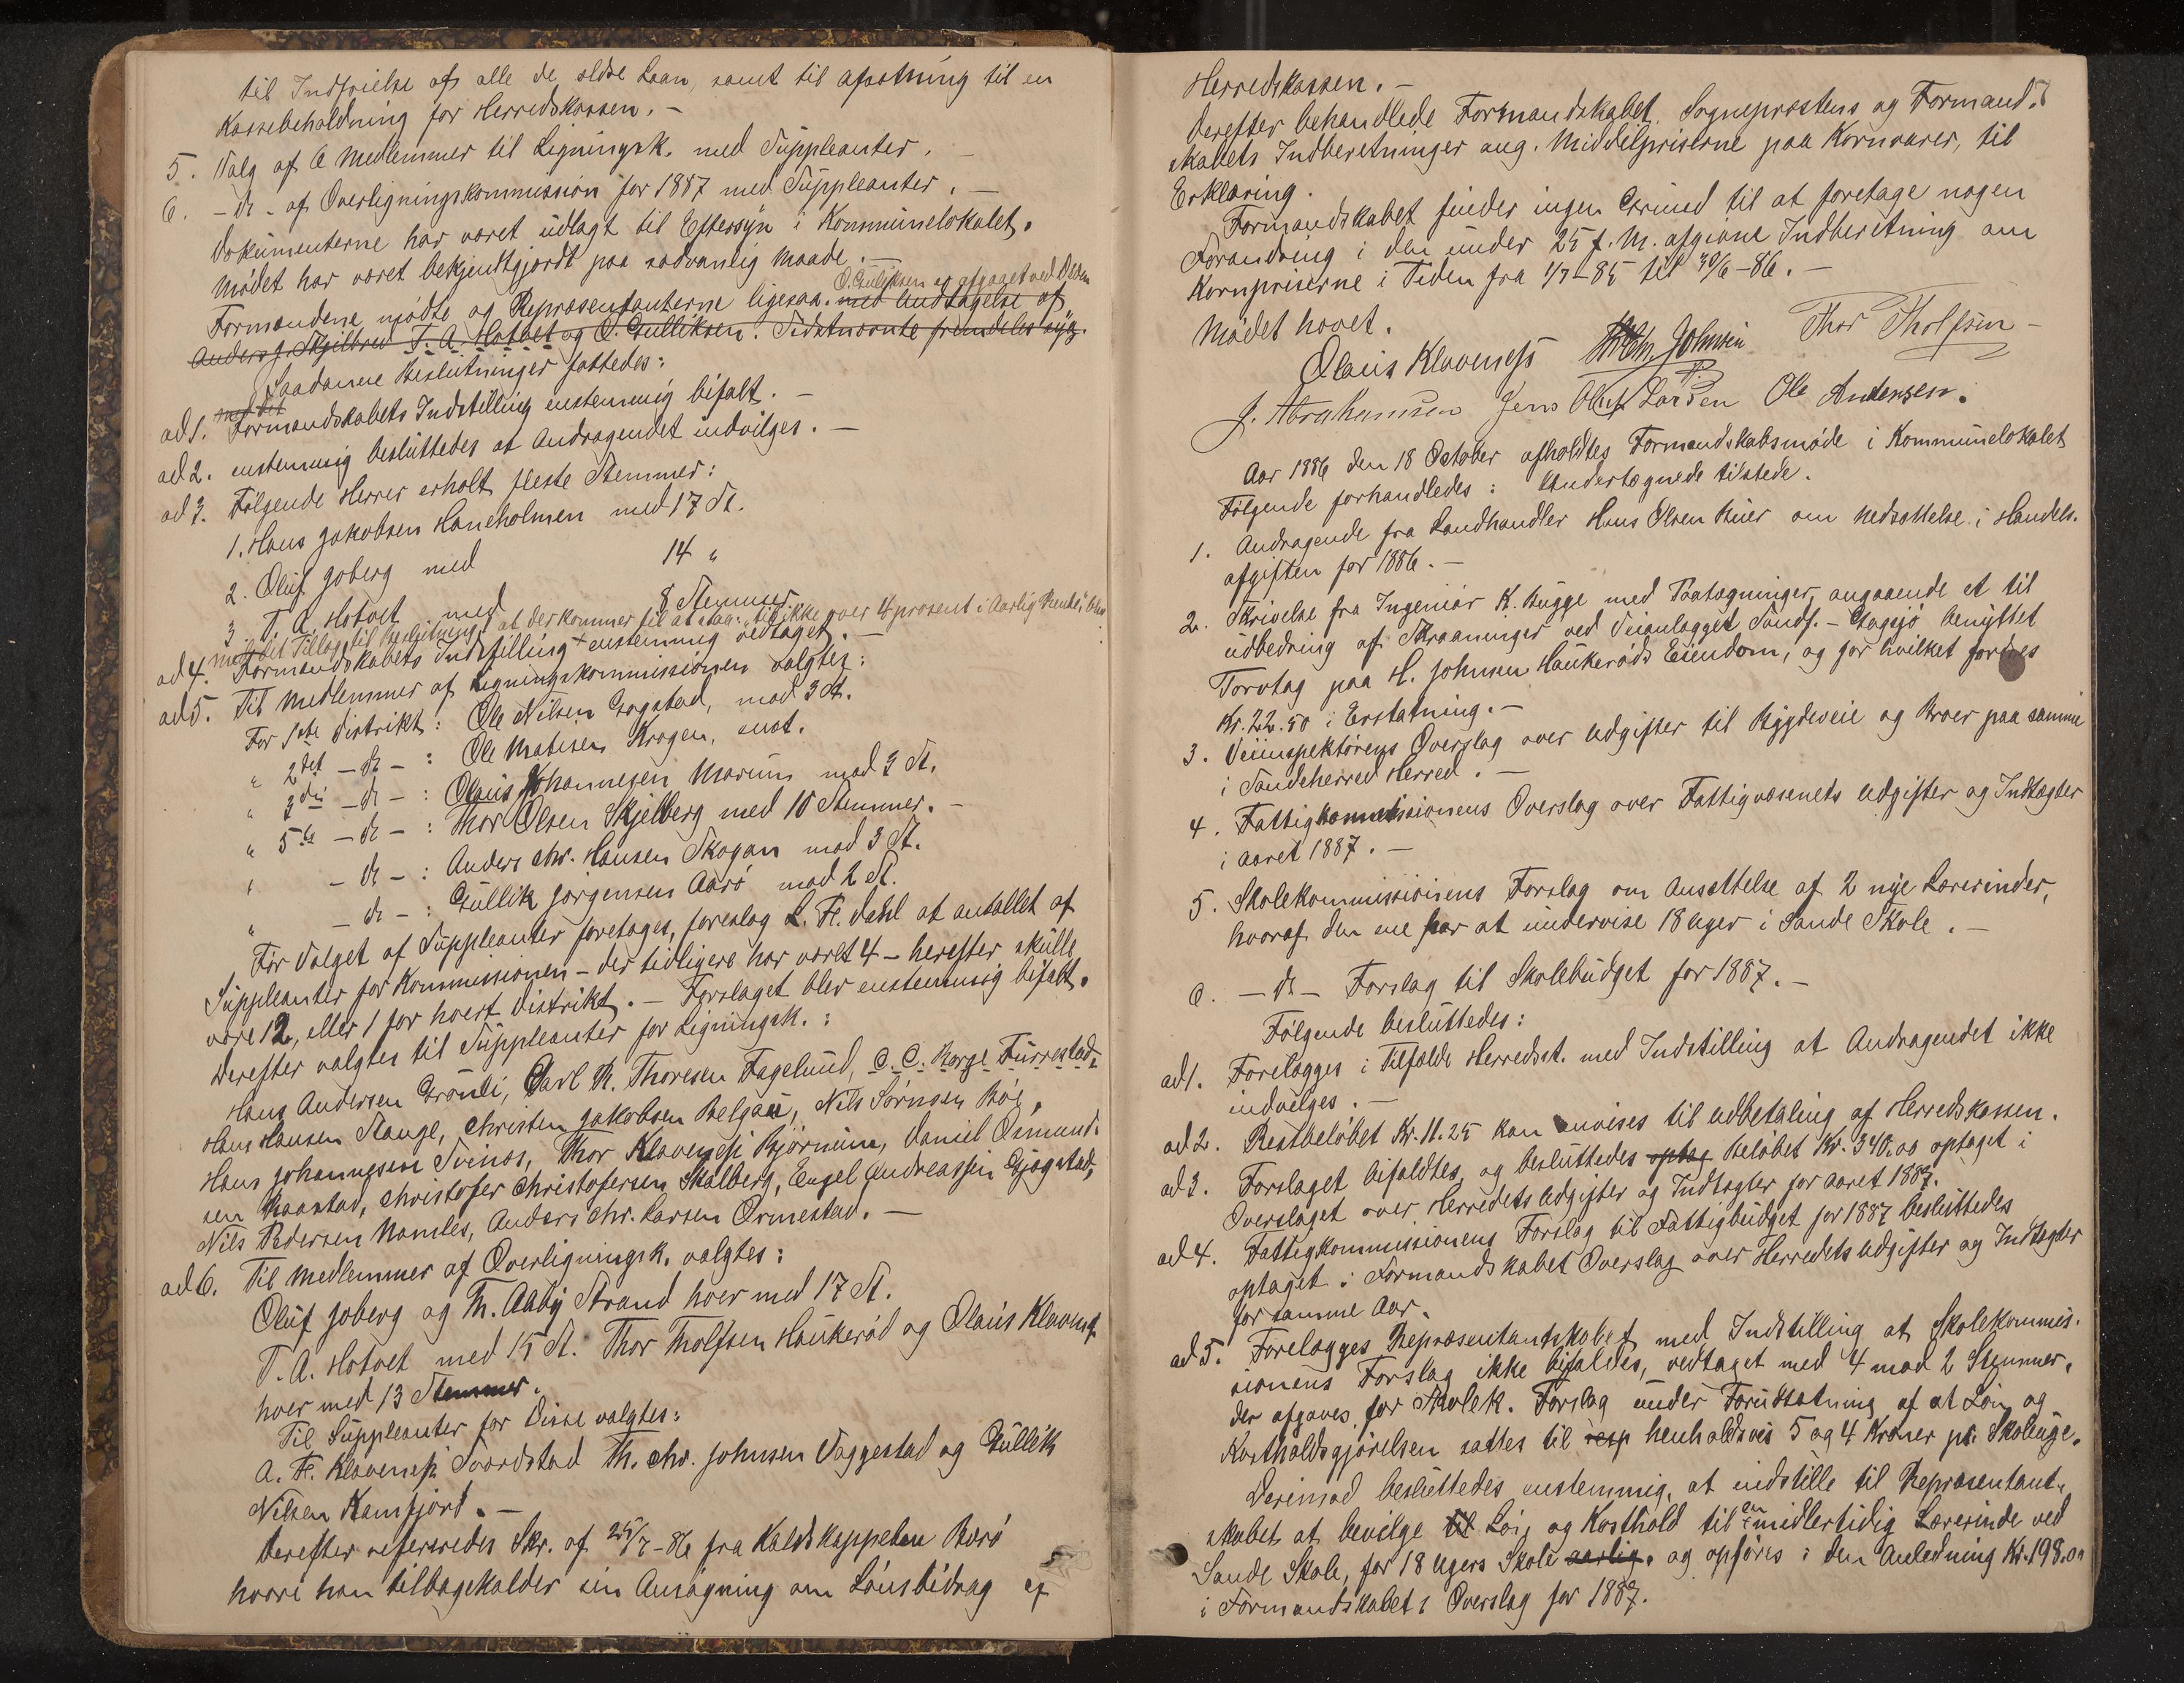 til Indfrielse af alle de ældre Laan, samt til afsætning til en
Kassebeholdning for Herredskassen. –
5. Valg af 6 Medlemmer til Ligningsk. med Suppleanter. –
6. – Do – af Overligningskommission for 1887 med Suppleanter. –
Dokumenterne har været udlagt til Eftersyn i Kommunelokalet.
Mødet har været bekjendtgjordt paa sædvanlig Maade. –
O. Gulliksen er afgaaet ved Døden
Formændene mødte og Repræsentanterne ligesaa. med Undtagelse af
Anders J. Skjelbred T. A. Hotvet og O. Gulliksen. Sidstnævnte fremdeles syg.
Saadanne Beslutninger fattedes:
med det
ad 1. Formandskabets Indstilling enstemmig bifalt. –
ad 2. enstemmig besluttedes at Andragendet indvilges. –
ad 3. Følgende Herrer erholt fleste Stemmer:
1. Hans Jakobsen Haneholmen med 17 St.
2. Oluf Joberg med 14 "
3 T. A. Hotvet med 8 Stemmer
med det Tillæg til Beslutning: at der kommer til at staa: "til ikke over 4 prosent i Aarlig Rente",
ad 4. Formandskabets Indstilling + enstemmig vedtaget. –
ad 5. Til Medlemmer af Ligningskommissionen valgtes:
For 1ste Distrikt: Ole Nilsen Gogstad, mod 3 St.
" 2det – Do – : Ole Matisen Krogen, enst.
" 3die – Do – : Olaus Johannesen Marum mod 3 St.
" 5te – Do – : Thor Olsen Skjelberg med 10 Stemmer. –
" – Do – : Anders Chr. Hansen Skogan mod 3 St.
" – Do – : Gullik Jørgensen Aarø mod 2 St.
Før Valget af Suppleanter foretages, foreslog L. Fr. Dahl at antallet af
Suppleanter for Kommissionen – der tidligere har været 4 – herefter skulle
være 12, eller 1 for hvert Distrikt. – Forslaget blev enstemmig bifalt.
Derefter valgtes til Suppleanter for Ligningsk.:
Hans Andersen Grønli, Carl M. Thoresen Fagelund, C. C. Borge Furrestad,
Hans Hansen Stange, Christen Jakobsen Belgau, Nils Sørnsen Bøe,
Hans Johannesen Svinøs, Thor Klavenæss Bjørnum, Daniel Osmund-
sen Raastad, Christofer Christofersen Skalberg, Engel Andreassen Gjøgstad,
Nils Pedersen Namles, Anders Chr. Larsen Ormestad. –
ad 6. Til Medlemmer af Overligningsk. valgtes:
Oluf Joberg og Th. Aaby Strand hver med 17 St.
T. A. Hotvet med 15 St. Thor Tholfsen Haukerød og Olaus Klavenæss
hver med 13 Stemmer.
Til Suppleanter for Disse valgtes:
A. Fr. Klavenæss Svordstad Th. Chr. Johnsen Vaggestad og Gullik
Nilsen Kamfjord. –
Derefter refereredes Skr. af 25/7-86 fra Kaldskappelan Borø
hvori han tilbagekalder sin Ansøgning om Lønsbidrag af
Herredskassen. –
Derefter behandlede Formandskabet Sogneprestens og Formand-
skabets Indberetninger ang. Middelpriserne paa Kornvarer, til
Erklæring.
Formandskabet finder ingen Grund til at foretage nogen
Forandring i den under 25 f. M. afgivne Indberetning om
Kornpriserne i Tiden fra 1/7-85 til 30/6-86. –
Mødet hævet.
Olaus Klavenæss Johnsen Thor Tholfsen
J. Abrahamsen Jens Oluf Larsen Ole Andersen.
Aar 1886 den 18 October afholdtes Formandskabsmøde i Kommunelokalet
Følgende forhandledes: Undertegnede tilstede.
1. Andragende fra Landhandler Hans Olsen Buer om Nedsættelse i Handels-
afgiften for 1886. –
2. Skrivelse fra Ingeniør K. Bugge med Paategninger, angaaende et til
udbedring af Skraaninger ved Veianlægget Sandf. – Gogsjø benyttet
Torvtag paa H. Johnsen Haukerøds Eiendom, og for hvilket fordres
Kr. 22.50 i Erstatning. –
3. Veiinspektørens Overslag over Udgifter til Bygdeveie og Broer paa samme
i Sandeherred Herred. –
4. Fattigkommissionens Overslag over Fattigvæsenets Udgifter og Indtægter
i Aaret 1887. –
5. Skolekommissionens Forslag om Ansættelse af 2 nye Lærerinder,
hvoraf den ene har at undervise 18 Uger i Sande Skole. –
6. – Do – Forslag til Skolebudget for 1887. –
Følgende besluttedes:
ad 1. Forelægges i Tilfælde Herredsst. med Indstilling at Andragendet ikke
indvilges. –
ad 2. Restbeløbet Kr. 11.25 kan anvises til Udbetaling af Herredskassen.
ad 3. Forslaget bifaldtes, og besluttedes optag Beløbet Kr. 340.00 optaget i
Overslaget over Herredets Udgifter og Indtægter for Aaret 1887.
ad 4. Fattigkommissionens Forslag til Fattigbudget for 1887 besluttedes
optaget i Formandskabet Overslag over Herredets Udgifter og Indtægter
for samme Aar.
ad 5. Forelægges Repræsentantskabet med Indstilling at Skolekommis-
sionens Forslag ikke bifaldes, vedtaget med 4 mod 2 Stemmer,
der afgaves for Skolek. Forslag under Forudsætning af at Løn og
Kostholdsgjørelsen sattes til resp henholdsvis 5 og 4 Kroner pr. Skoleuge.
Derimod besluttedes enstemmig, at indstille til Repræsentant-
skabet at bevilge til Løn og Kosthold til en midlertidig Lærerinde ved
Sande Skole, for 18 Ugers Skole aarlig, og opføres i den Anledning Kr. 198.00
i Formandskabets Overslag for 1887.